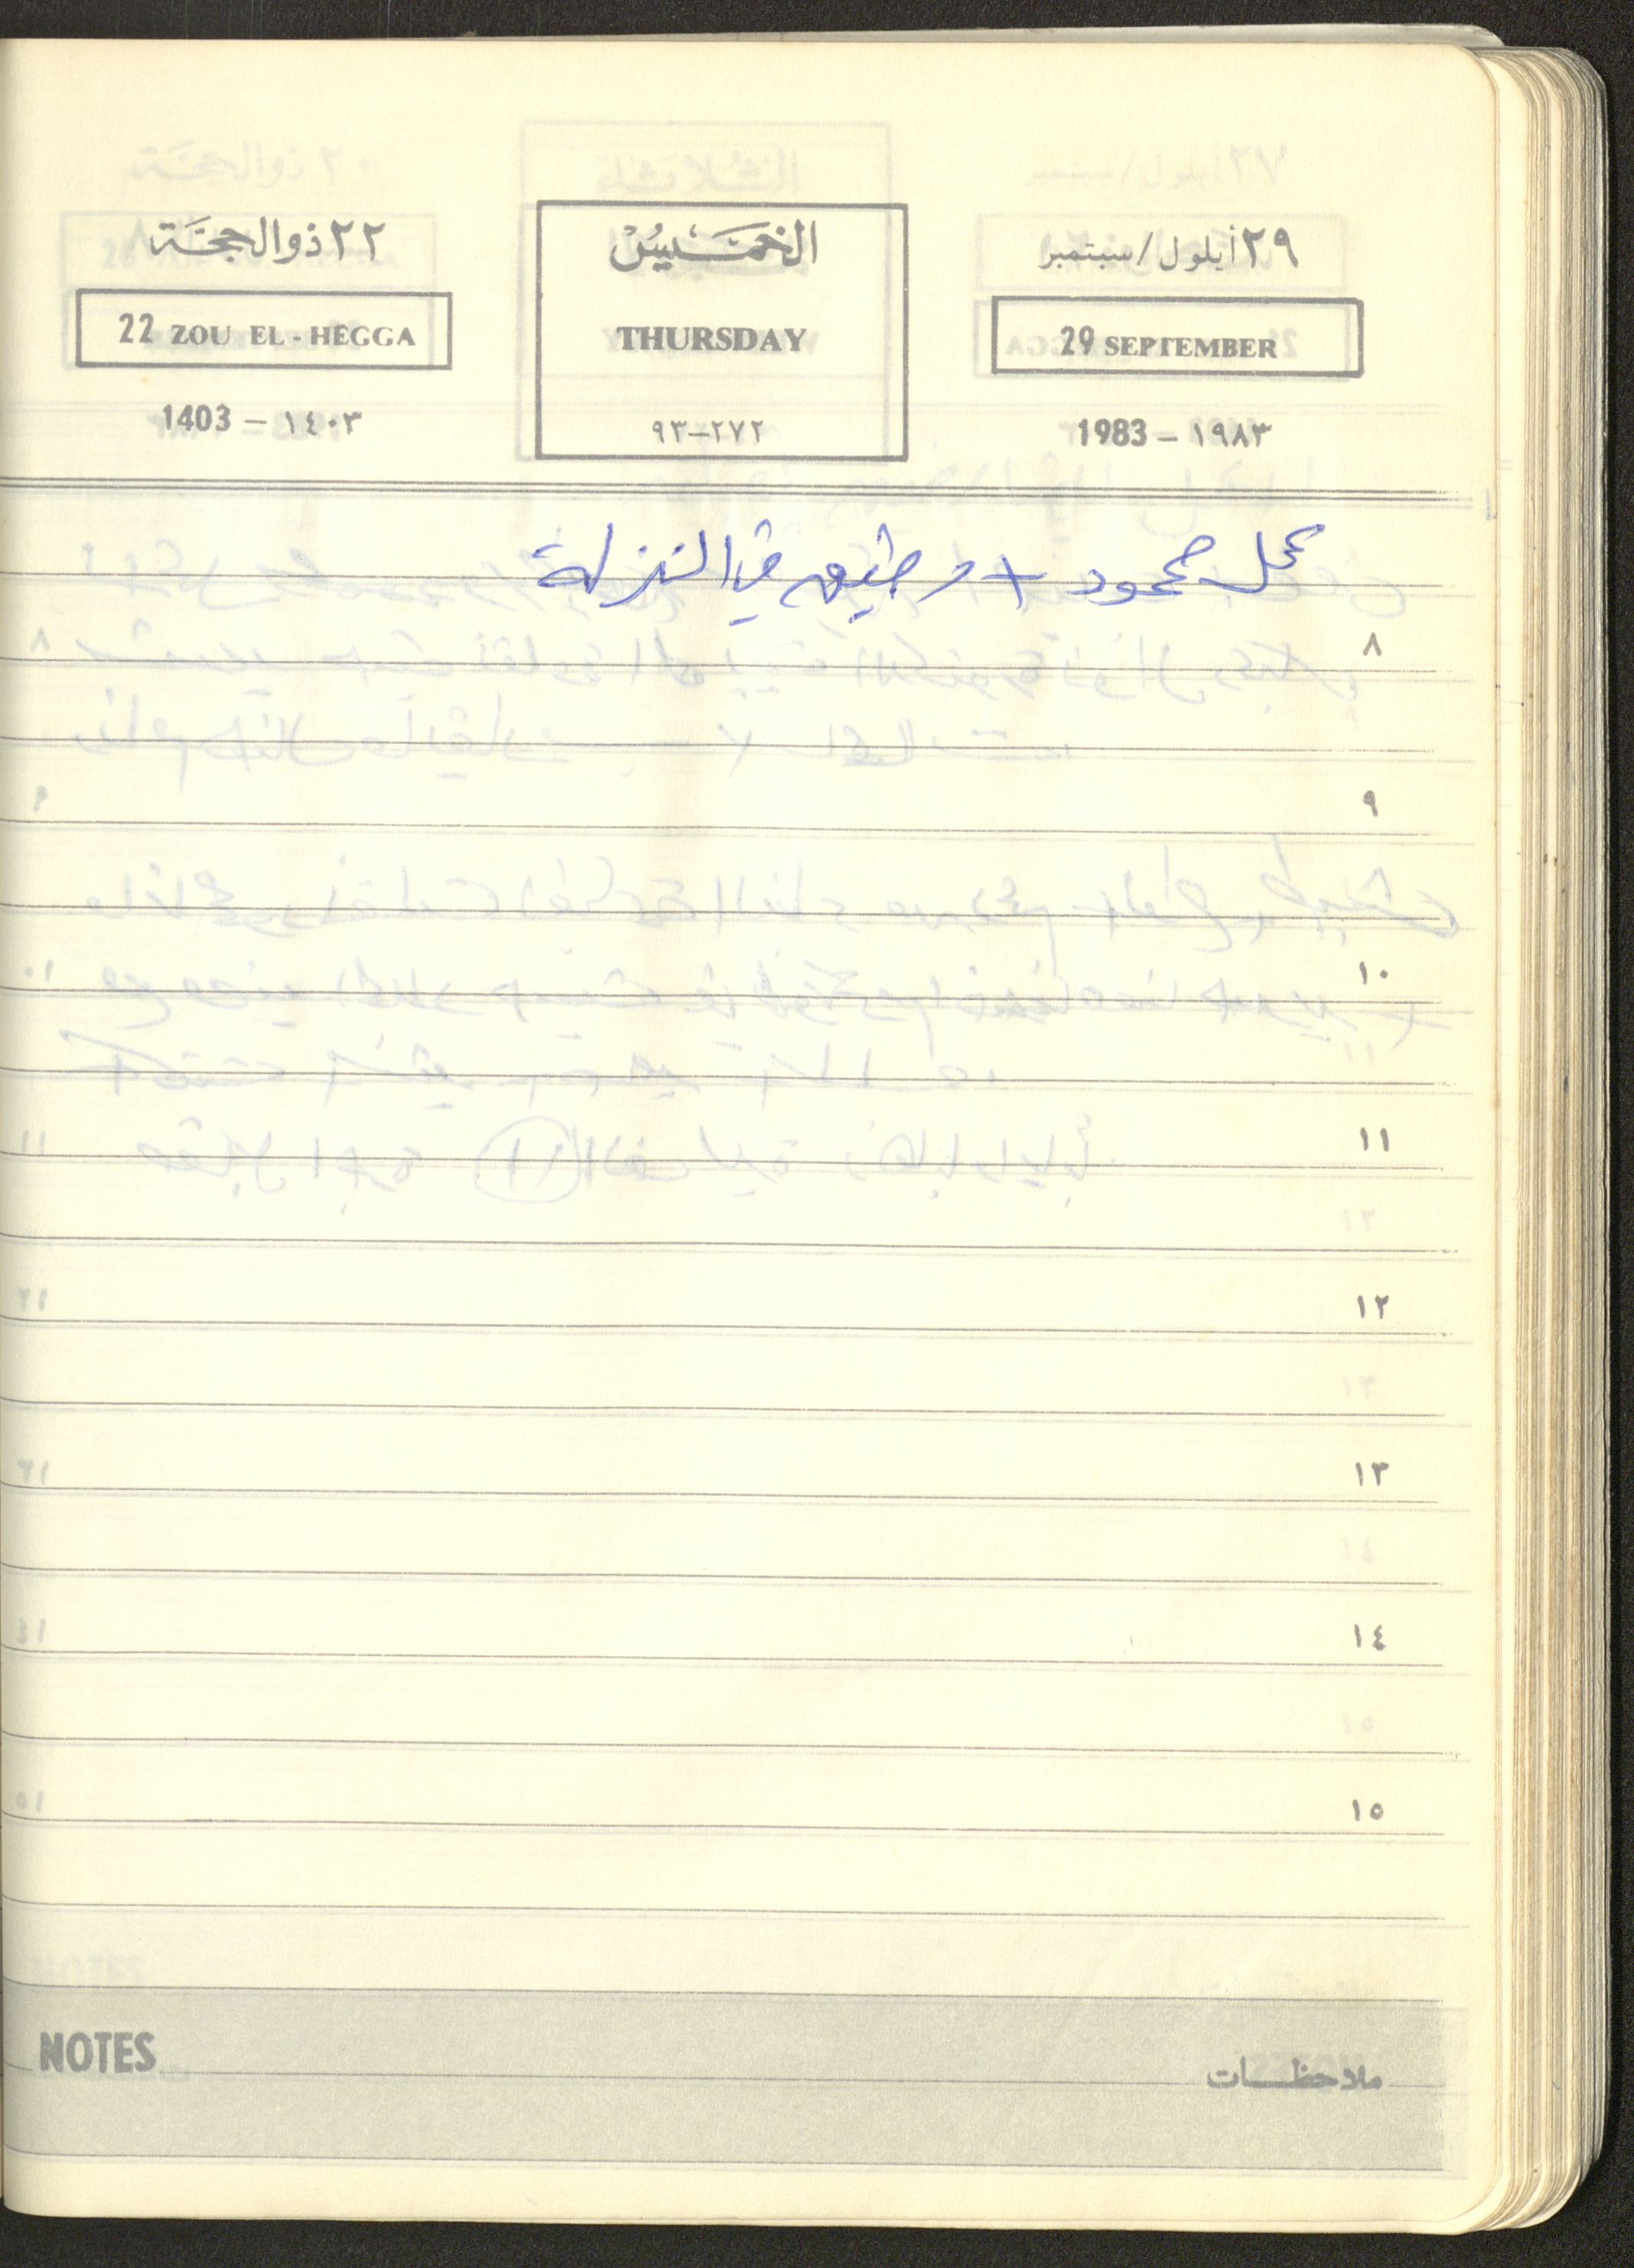 ٢٩ أيلول/سبتمبر
29 SEPTEMBER
1983 – ١٩٨٣
الخميس
THURSDAY
٩٣–٢٧٢
٢٢ ذو الحجة
22 ZOU EL - HEGGA
1403 – ١٤٠٣
عمل محمود + في النزلة
٨
٩
١٠
١١
١٢
١٣
١٤
١٥
NOTES ملاحظات